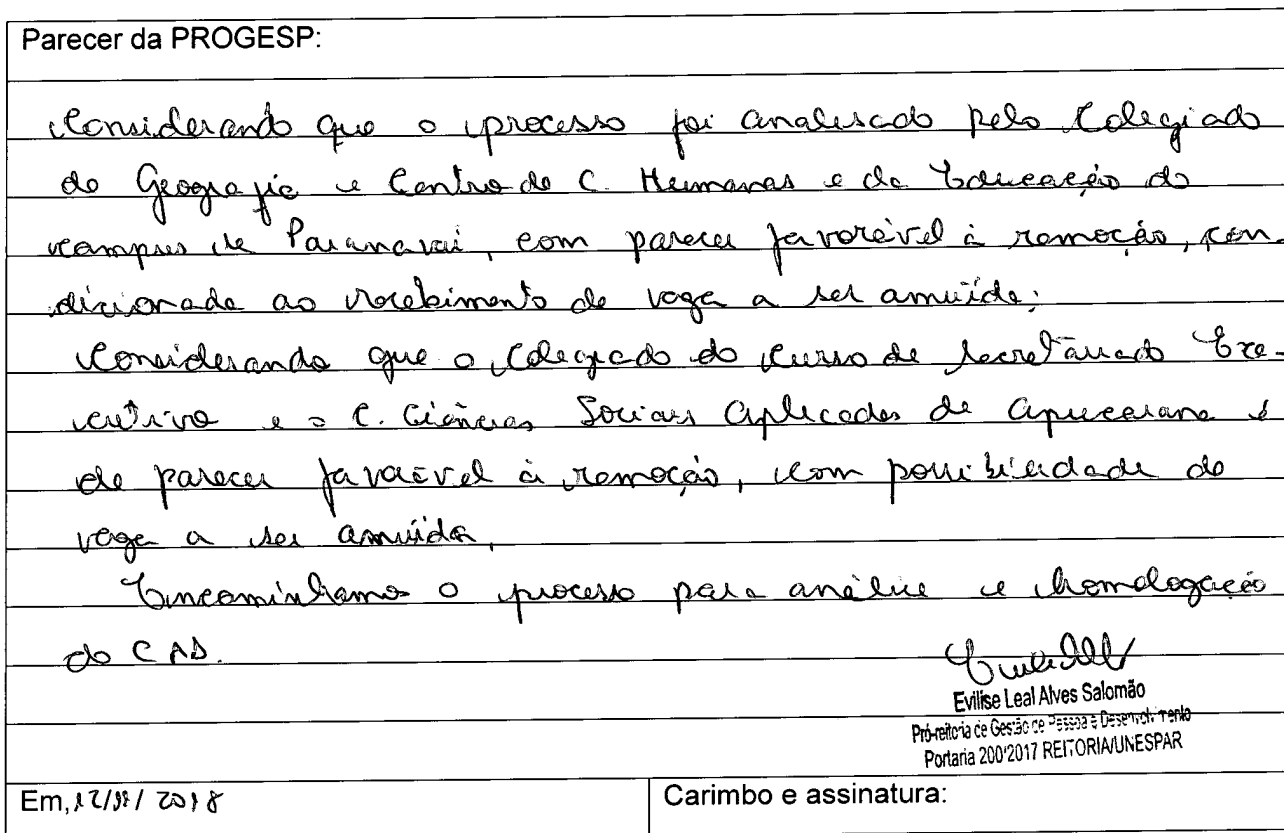 Parecer da PROGESP:
Considerando que o processo foi analisado pelo Colegiado
de Geografia e Centro de C. Humanas e da Educação do
campus de Paranavaí, com parecer favorável à remoção, con-
dicionada ao recebimento de vaga a ser anuída;
Considerando que o Colegiado do Curso de Secretariado Exe-
cutivo e o C. Ciências Sociais Aplicadas de Apucarana é
de parecer favorável à remoção, com possibilidade de
vaga a ser anuída,
Encaminhamos o processo para análise e homologação
do CAD.
Evilise Leal Alves Salomão
Pró-reitoria de Gestão de Pessoa e Desenvolvimento
Portaria 200/2017 REITORIA/UNESPAR
Em, 12/11/2018
Carimbo e assinatura: